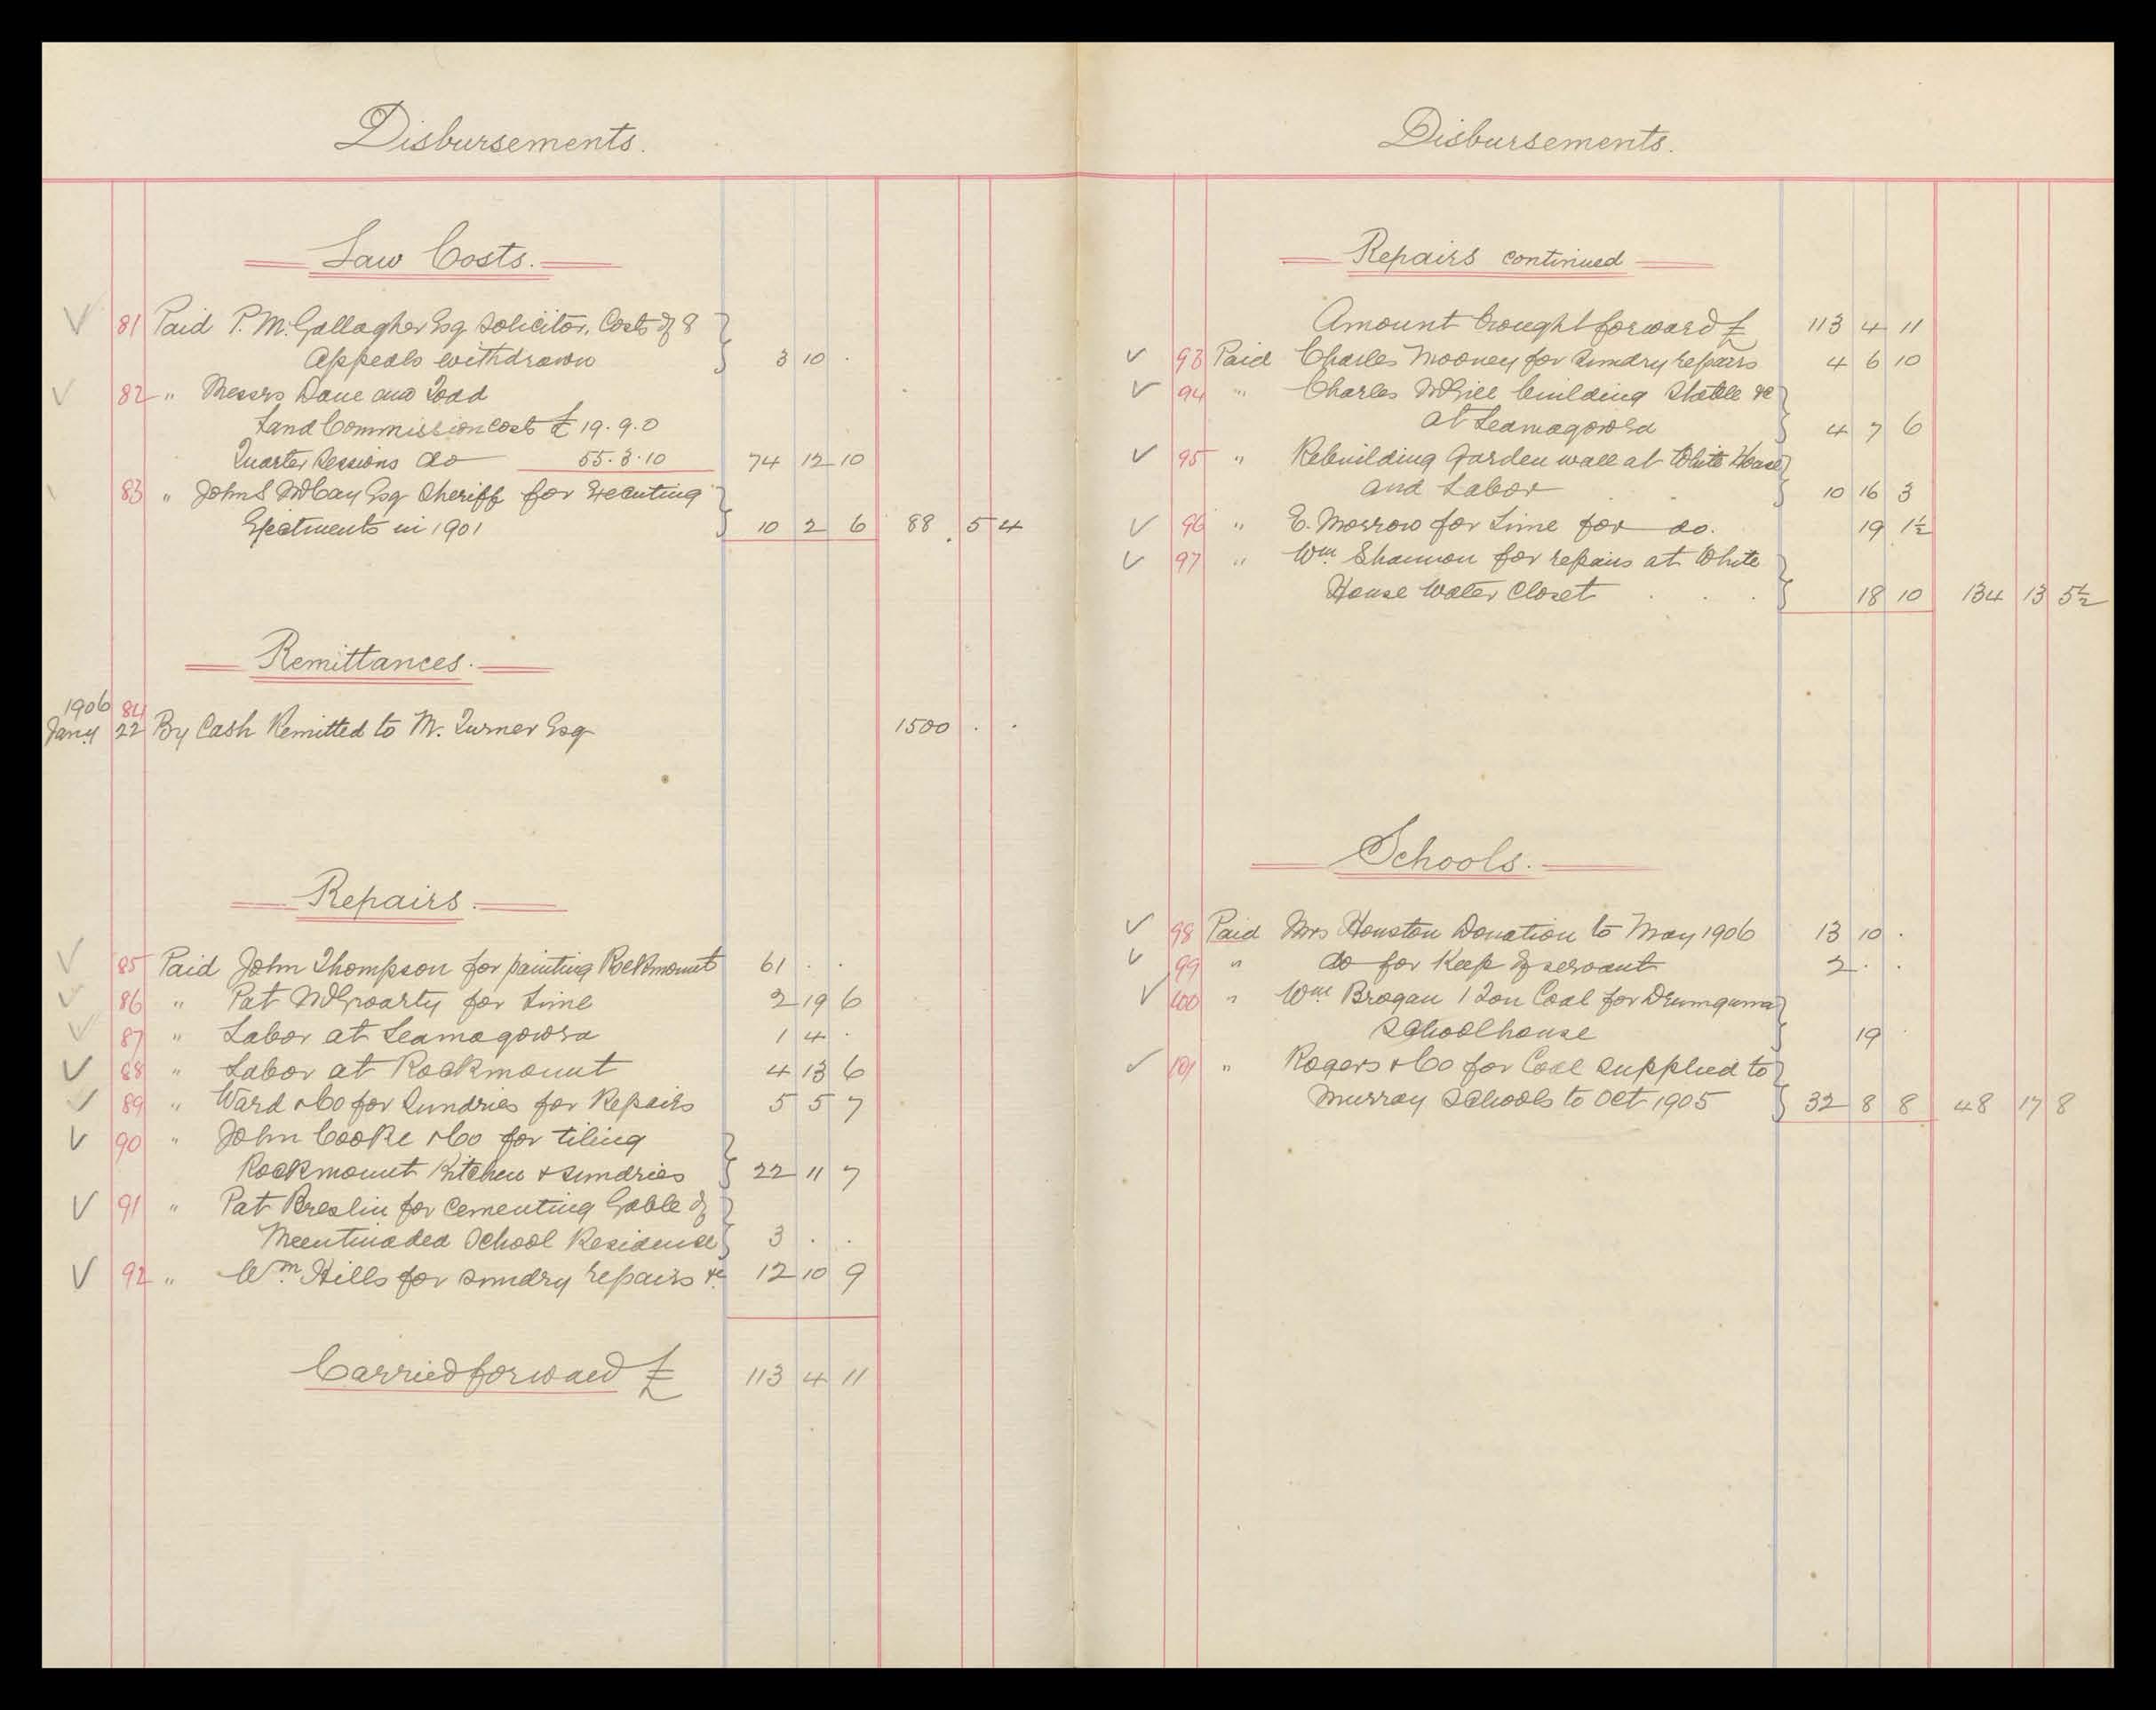 Disbursements.
Law Costs.
81 Paid P. M. Gallagher Esq Solicitor, Costs of 8
Appeals withdrawn 3 10 .
82 " Messrs Dane and Todd
Land Commission Costs £ 19. 9. 0
Quarter Sessions do 55. 3. 10 74 12 10
83 " John S McCay Esq Sheriff for Executing
Ejectments in 1901 10 2 6 88 . 5 4
Remittances.
1906 84
Jany 22 By Cash Remitted to M. Turner Esq 1500 . .
Repairs.
85 Paid John Thompson for painting Rockmount 61 . .
86 " Pat McGroarty for Lime 2 19 6
87 " Labor at Leamagowra 1 4 .
88 " Labor at Rockmount 4 13 6
89 " Ward & Co for Sundries for Repairs 5 5 7
90 " John Cooke & Co for tiling
Rockmount Kitchen & sundries 22 11 7
91 " Pat Breslin for cementing Gable of
School Residence 3 . .
92 " Wm Hills for sundry repairs &c 12 10 9
Carried forward £ 113 4 11
Disbursements.
Repairs continued
Amount brought forward £ 113 4 11
93 Paid Charles Mooney for Sundry repairs 4 6 10
94 " Charles McGill building Stable &c
at Leamagowra 4 7 6
95 " Rebuilding Garden wall at White House
and Labor 10 16 3
96 " E. Morrow for Lime for do. 19 1½
97 " Wm Shannon for repairs at White
House Water Closet . . . 18 10 134 13 5½
Schools.
98 Paid Mrs Houston Donation to May 1906 13 10 .
99 " do for Keep of servant 2 . .
100 " Wm Brogan 1 Ton Coal for
Schoolhouse 19 .
101 " Rogers & Co for Coal supplied to
Murray Schools to Oct 1905 32 8 8 48 17 8